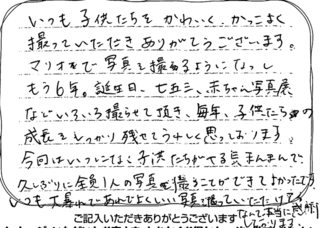 いつも子供たちを かわいく、かっこよく
撮っていただき ありがとうございます。
マリオで 写真を 撮るようになって
もう6年。誕生日、七五三、赤ちゃん写真展
などいろいろ撮らせて頂き、毎年、子供たちの
成長をしっかり 残せてうれしく思っております。
今回はいつになく子供たちがやる気まんまんで、
久しぶりに全員1人の写真も撮ることができてよかったです。
いつも大暴れであれでよくいい写真を撮っていただけて
ご記入いただきありがとうございます なんて本当に感謝
しております。